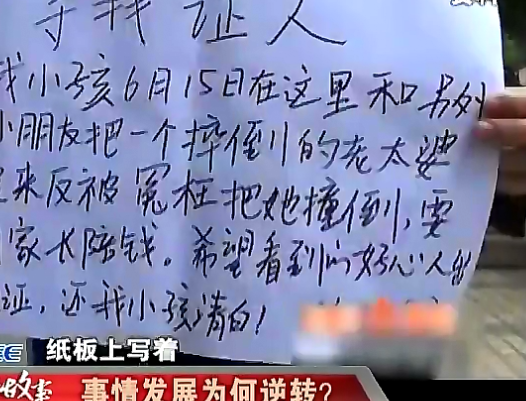 寻找证人
我小孩6月15日在这里和另外
小朋友把一个摔倒的老太婆
来反被冤枉把她撞倒,要
家长陪钱。希望看到的好心人
证,还我小孩清白!
纸板上写着
故事 事情发展为何逆转?